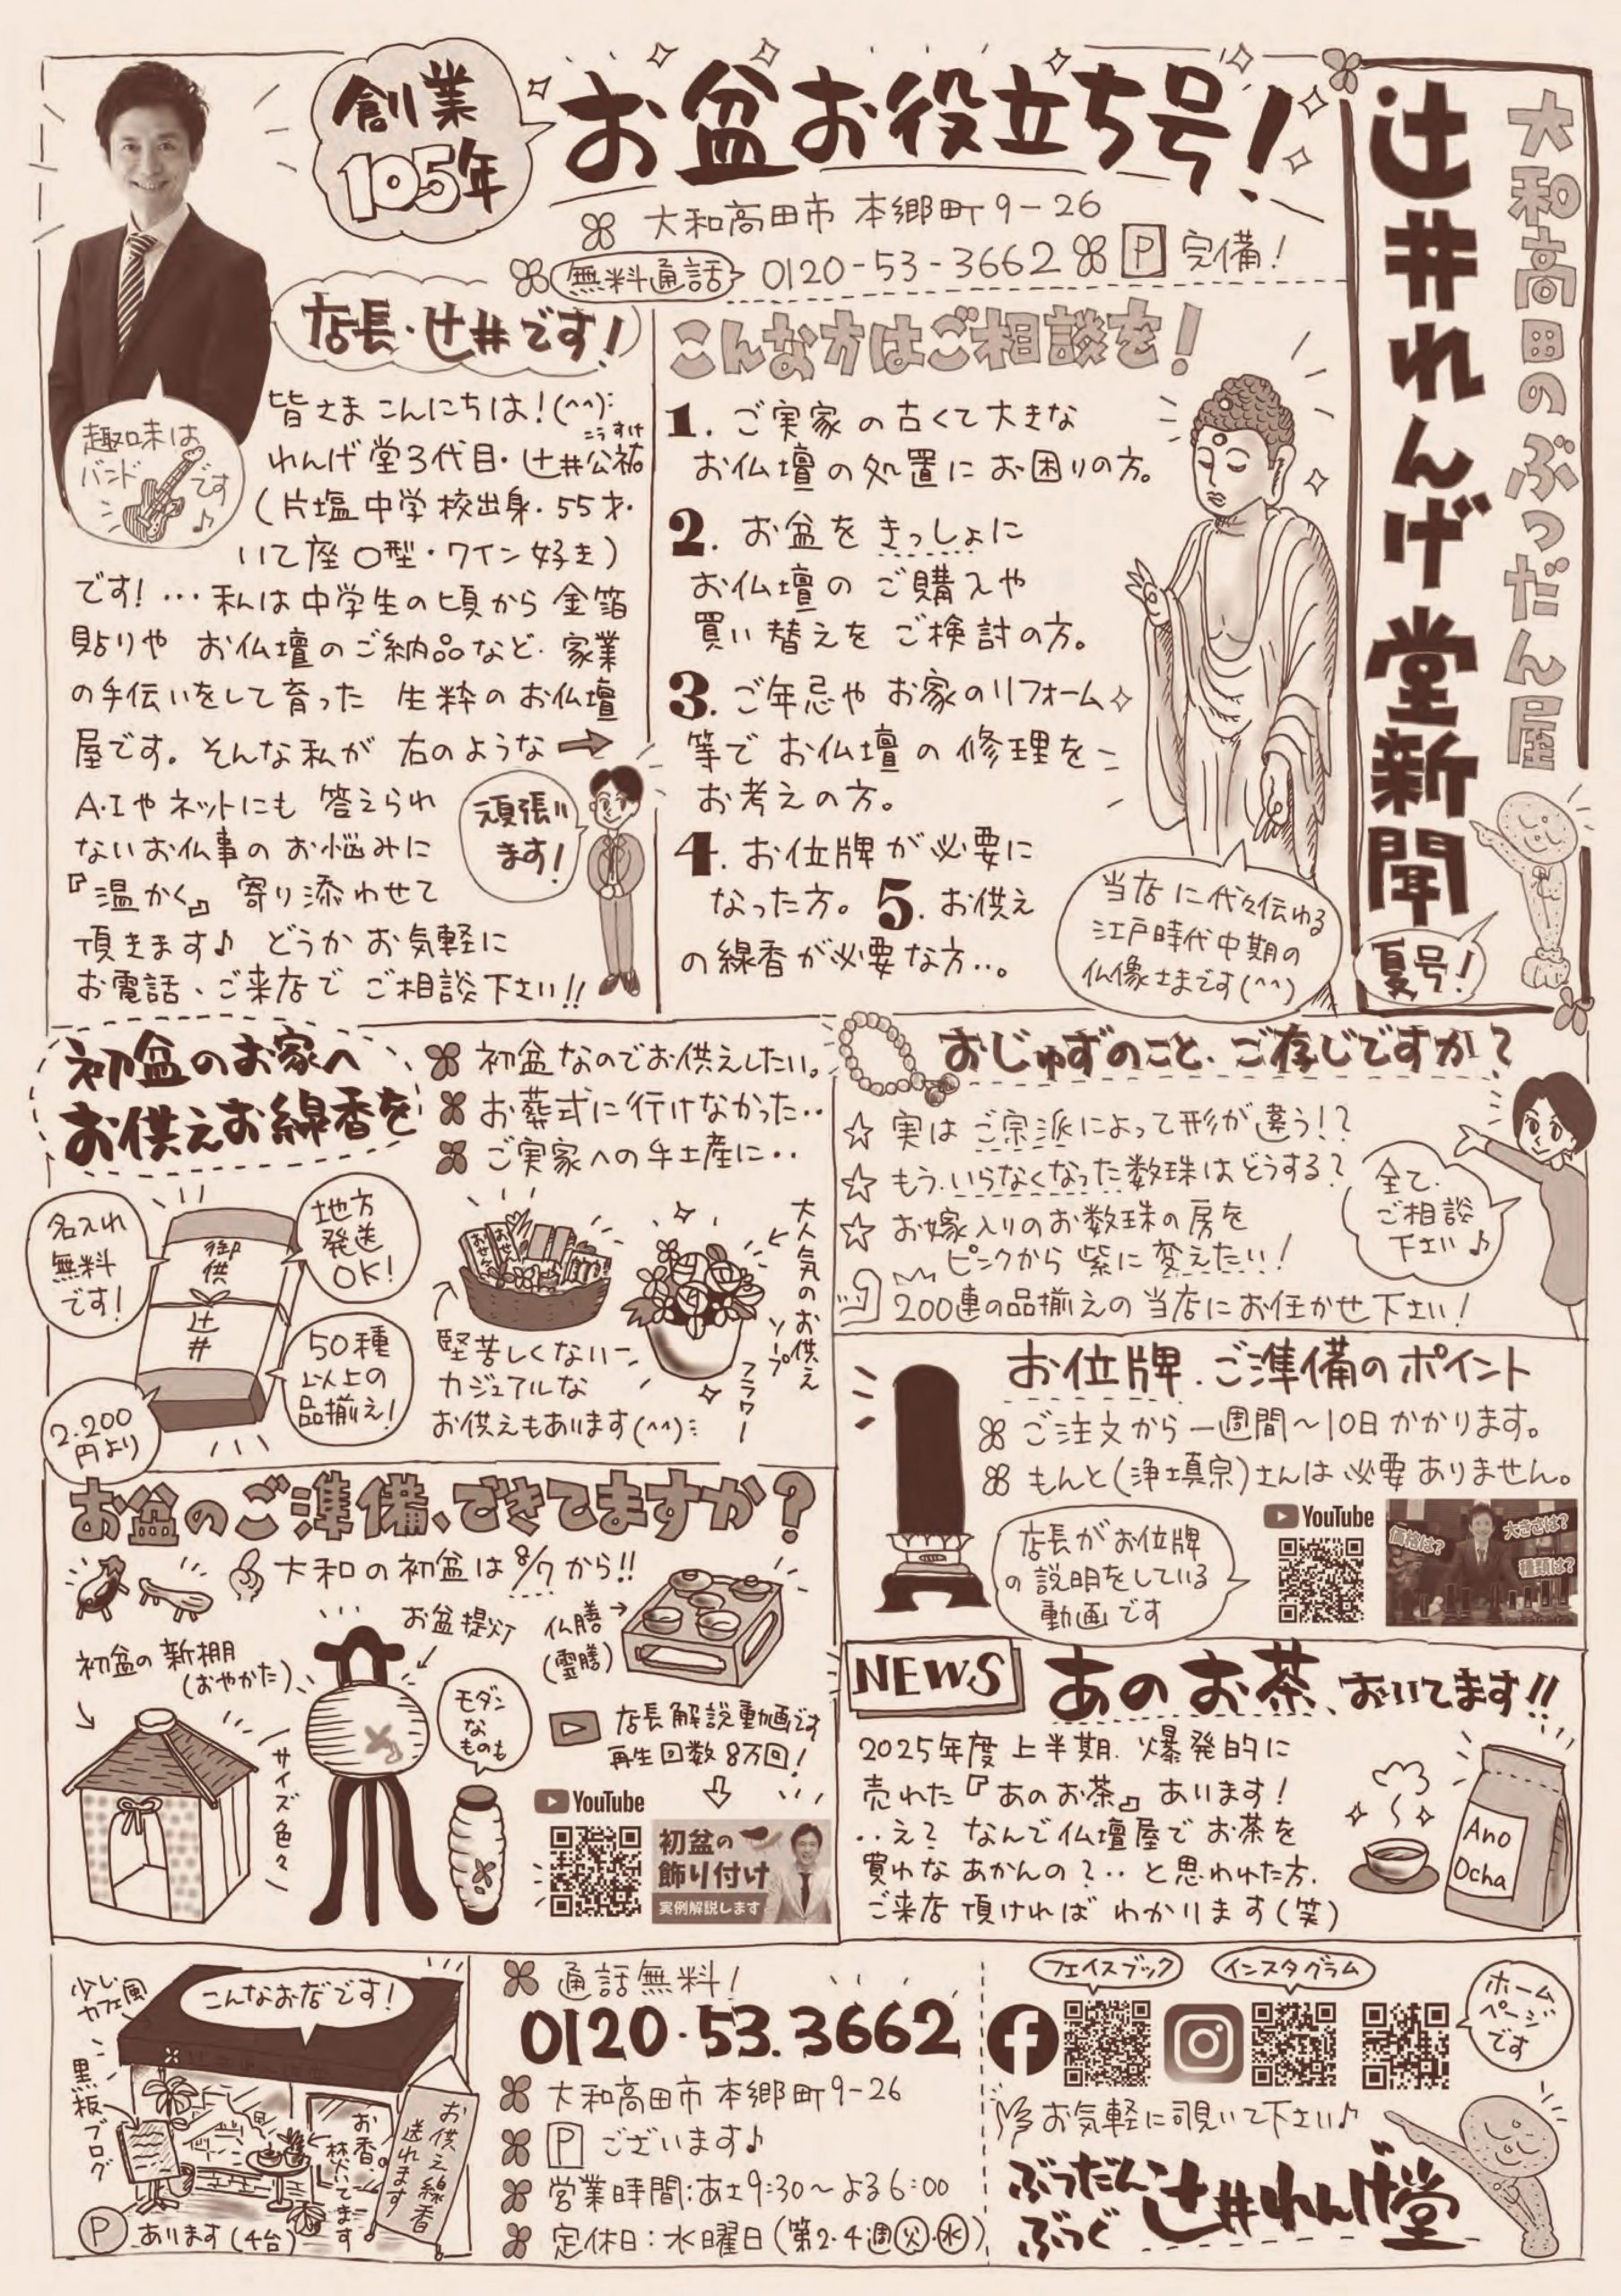 大和高田のぶつだん屋
辻井れんげ堂新聞
夏号!
創業
105年
お盆お役立ち号!
大和高田市 本郷町9-26
無料通話 0120-53-3662 P 完備!
店長・辻井です!
趣味は
バンド
です♪
皆さまこんにちは!(^^)
こうすけ
れんげ堂3代目・辻井公祐
(片塩中学校出身・55才・
いて座 O型・ワイン好き)
です!…私は中学生の頃から 金箔
貼りや お仏壇のご納品など、家業
の手伝いをして育った 生粋のお仏壇
屋です。そんな私が 右のような→
A・Iやネットにも 答えられ
ないお仏事の お悩みに
『温かく』寄り添わせて
頂きます♪ どうかお気軽に
お電話、ご来店で ご相談下さい!!
頑張り
ます!
こんな方はご相談を!
1. ご実家の古くて大きな
お仏壇の処置に お困りの方。
2. お盆をきっしょに
お仏壇の ご購入や
買い替えを ご検討の方。
3. ご年忌や お家のリフォーム
等で お仏壇の修理を
お考えの方。
4. お位牌が必要に
なった方。5. お供え
の線香が必要な方…。
当店に代々伝わる
江戸時代中期の
仏像さまです(^^)
初盆のお家へ
お供えお線香を
初盆なのでお供えしたい。
お葬式に行けなかった‥
ご実家への手土産に‥
名入れ
無料
です!
地方
発送
OK!
御供
辻井
50種
以上の
品揃え!
2.200
円より
おせん
おせん
堅苦しくない
カジュアルな
お供えもあります(^^)
大人気のお供え
ソープフラワー
おじゅずのこと、ご存じですか?
☆ 実は ご宗派によって形が違う!?
☆ もう、いらなくなった数珠はどうする?
☆ お嫁入りのお数珠の房を
ピンクから紫に変えたい!
200連の品揃えの当店にお任かせ下さい!
全て、
ご相談
下さい♪
お位牌、ご準備のポイント
ご注文から一週間〜10日かかります。
もんと(浄土真宗)さんは必要ありません。
店長がお位牌
の説明をしている
動画です
YouTube
価格は?
大きさは?
種類は?
お盆のご準備、できてますか?
大和の初盆は8/7から!!
初盆の新棚
(おやかた)
サイズ色々
お盆提灯
モダン
な
ものも
仏膳
(霊膳)
店長解説動画です
再生回数8万回!
YouTube
初盆の
飾り付け
実例解説します
NEWS
あのお茶、おいてます!!
2025年度上半期、爆発的に
売れた『あのお茶』あります!
‥え? なんで仏壇屋でお茶を
買わなあかんの?‥と思われた方、
ご来店頂ければ わかります(笑)
Ano
Ocha
こんなお店です!
少し
カフェ風
黒板ブログ
お香、焚いてます
お供え線香
送れます
P あります(4台)
通話無料!
0120・53.3662
大和高田市本郷町9-26
P ございます♪
営業時間:あさ9:30〜よる6:00
定休日:水曜日(第2・4週火・水)
フェイスブック
インスタグラム
ホーム
ページ
です
お気軽に覗いて下さい♪
ぶつだん
ぶつぐ
辻井れんげ堂